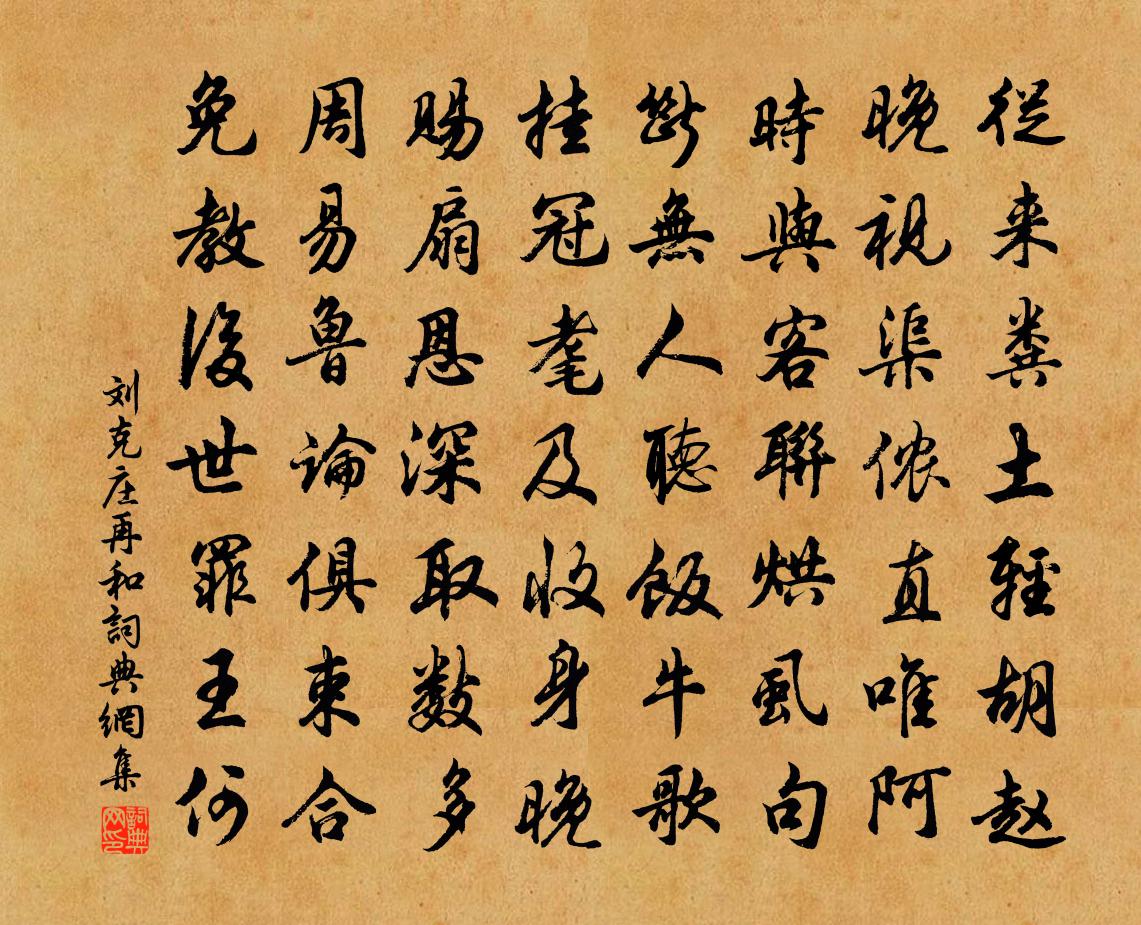 從来粪土輕胡赵
晚視渠侬直唯阿
時與客聯烘虱句
斷無人聽飯牛歌
挂冠耄及收身晚
賜扇恩深取数多
周易魯論俱束合
免教後世罪王何
刘克庄再和詞典網集
詞典网印